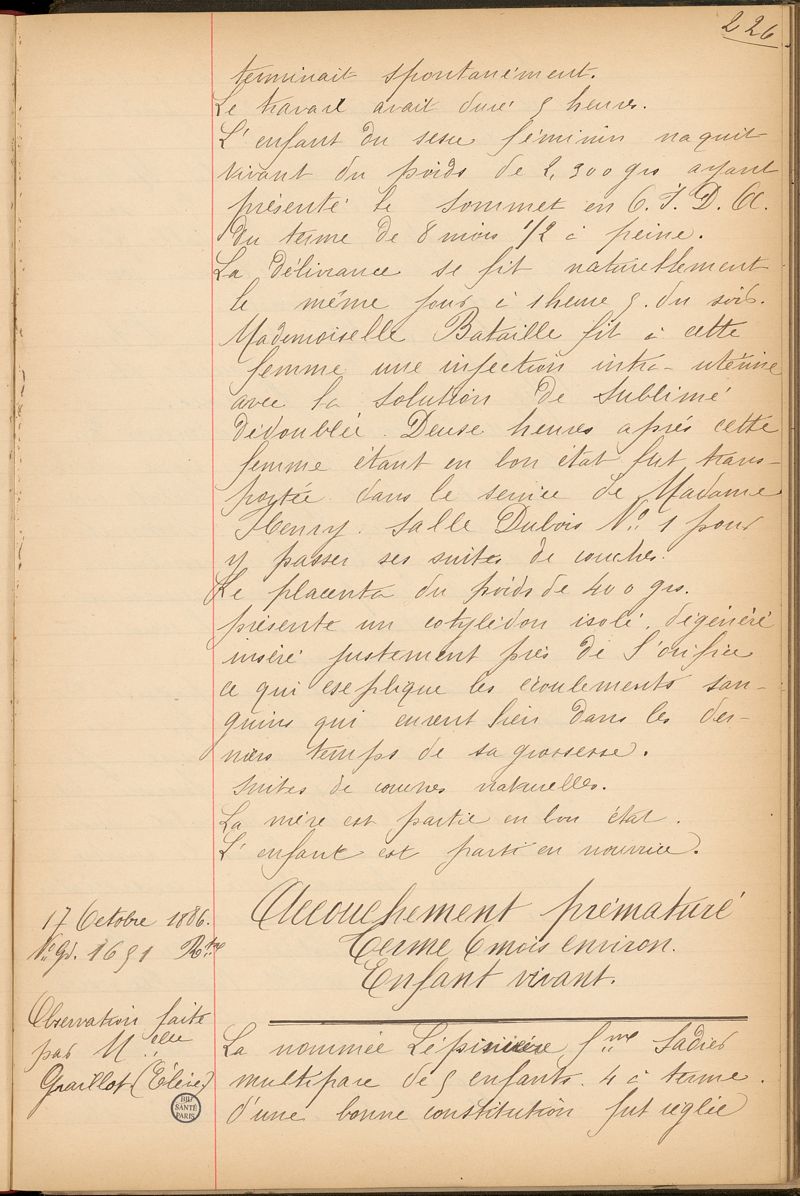 226
terminait spontanément.
Le travail avait duré 5 heures.
L'enfant du sexe féminin naquit
vivant du poids de 2,300 grs ayant
présenté le sommet en O.I.D.A.
du terme de 8 mois 1/2 à peine.
La délivrance se fit naturellement
le même jour à 1 heure 5. du soir.
Mademoiselle Bataille fit à cette
femme une injection intra-utérine
avec la solution de sublimé
dédoublée. Deux heures après cette
femme étant en bon état fut trans-
portée dans le service de Madame
Henry. Salle Dubois No 1 pour
y passer ses suites de couches.
Le placenta du poids de 400 grs.
présente un cotylédon isolé, dégénéré
inséré justement près de l'orifice
ce qui explique les écoulements san-
guins qui eurent lieu dans les der-
niers temps de sa grossesse.
Suites de couches naturelles.
La mère est partie en bon état.
L'enfant est parti en nourrice.
17 Octobre 1886.
No Gl. 1651 Rtre
Accouchement prématuré
Terme 6 mois environ.
Enfant vivant.
Observation faite
par Melle
Graillot (Elève)
BIU
SANTÉ
PARIS
La nommée Lépinière fme Sadier
multipare de 5 enfants. 4 à terme.
d'une bonne constitution fut réglée